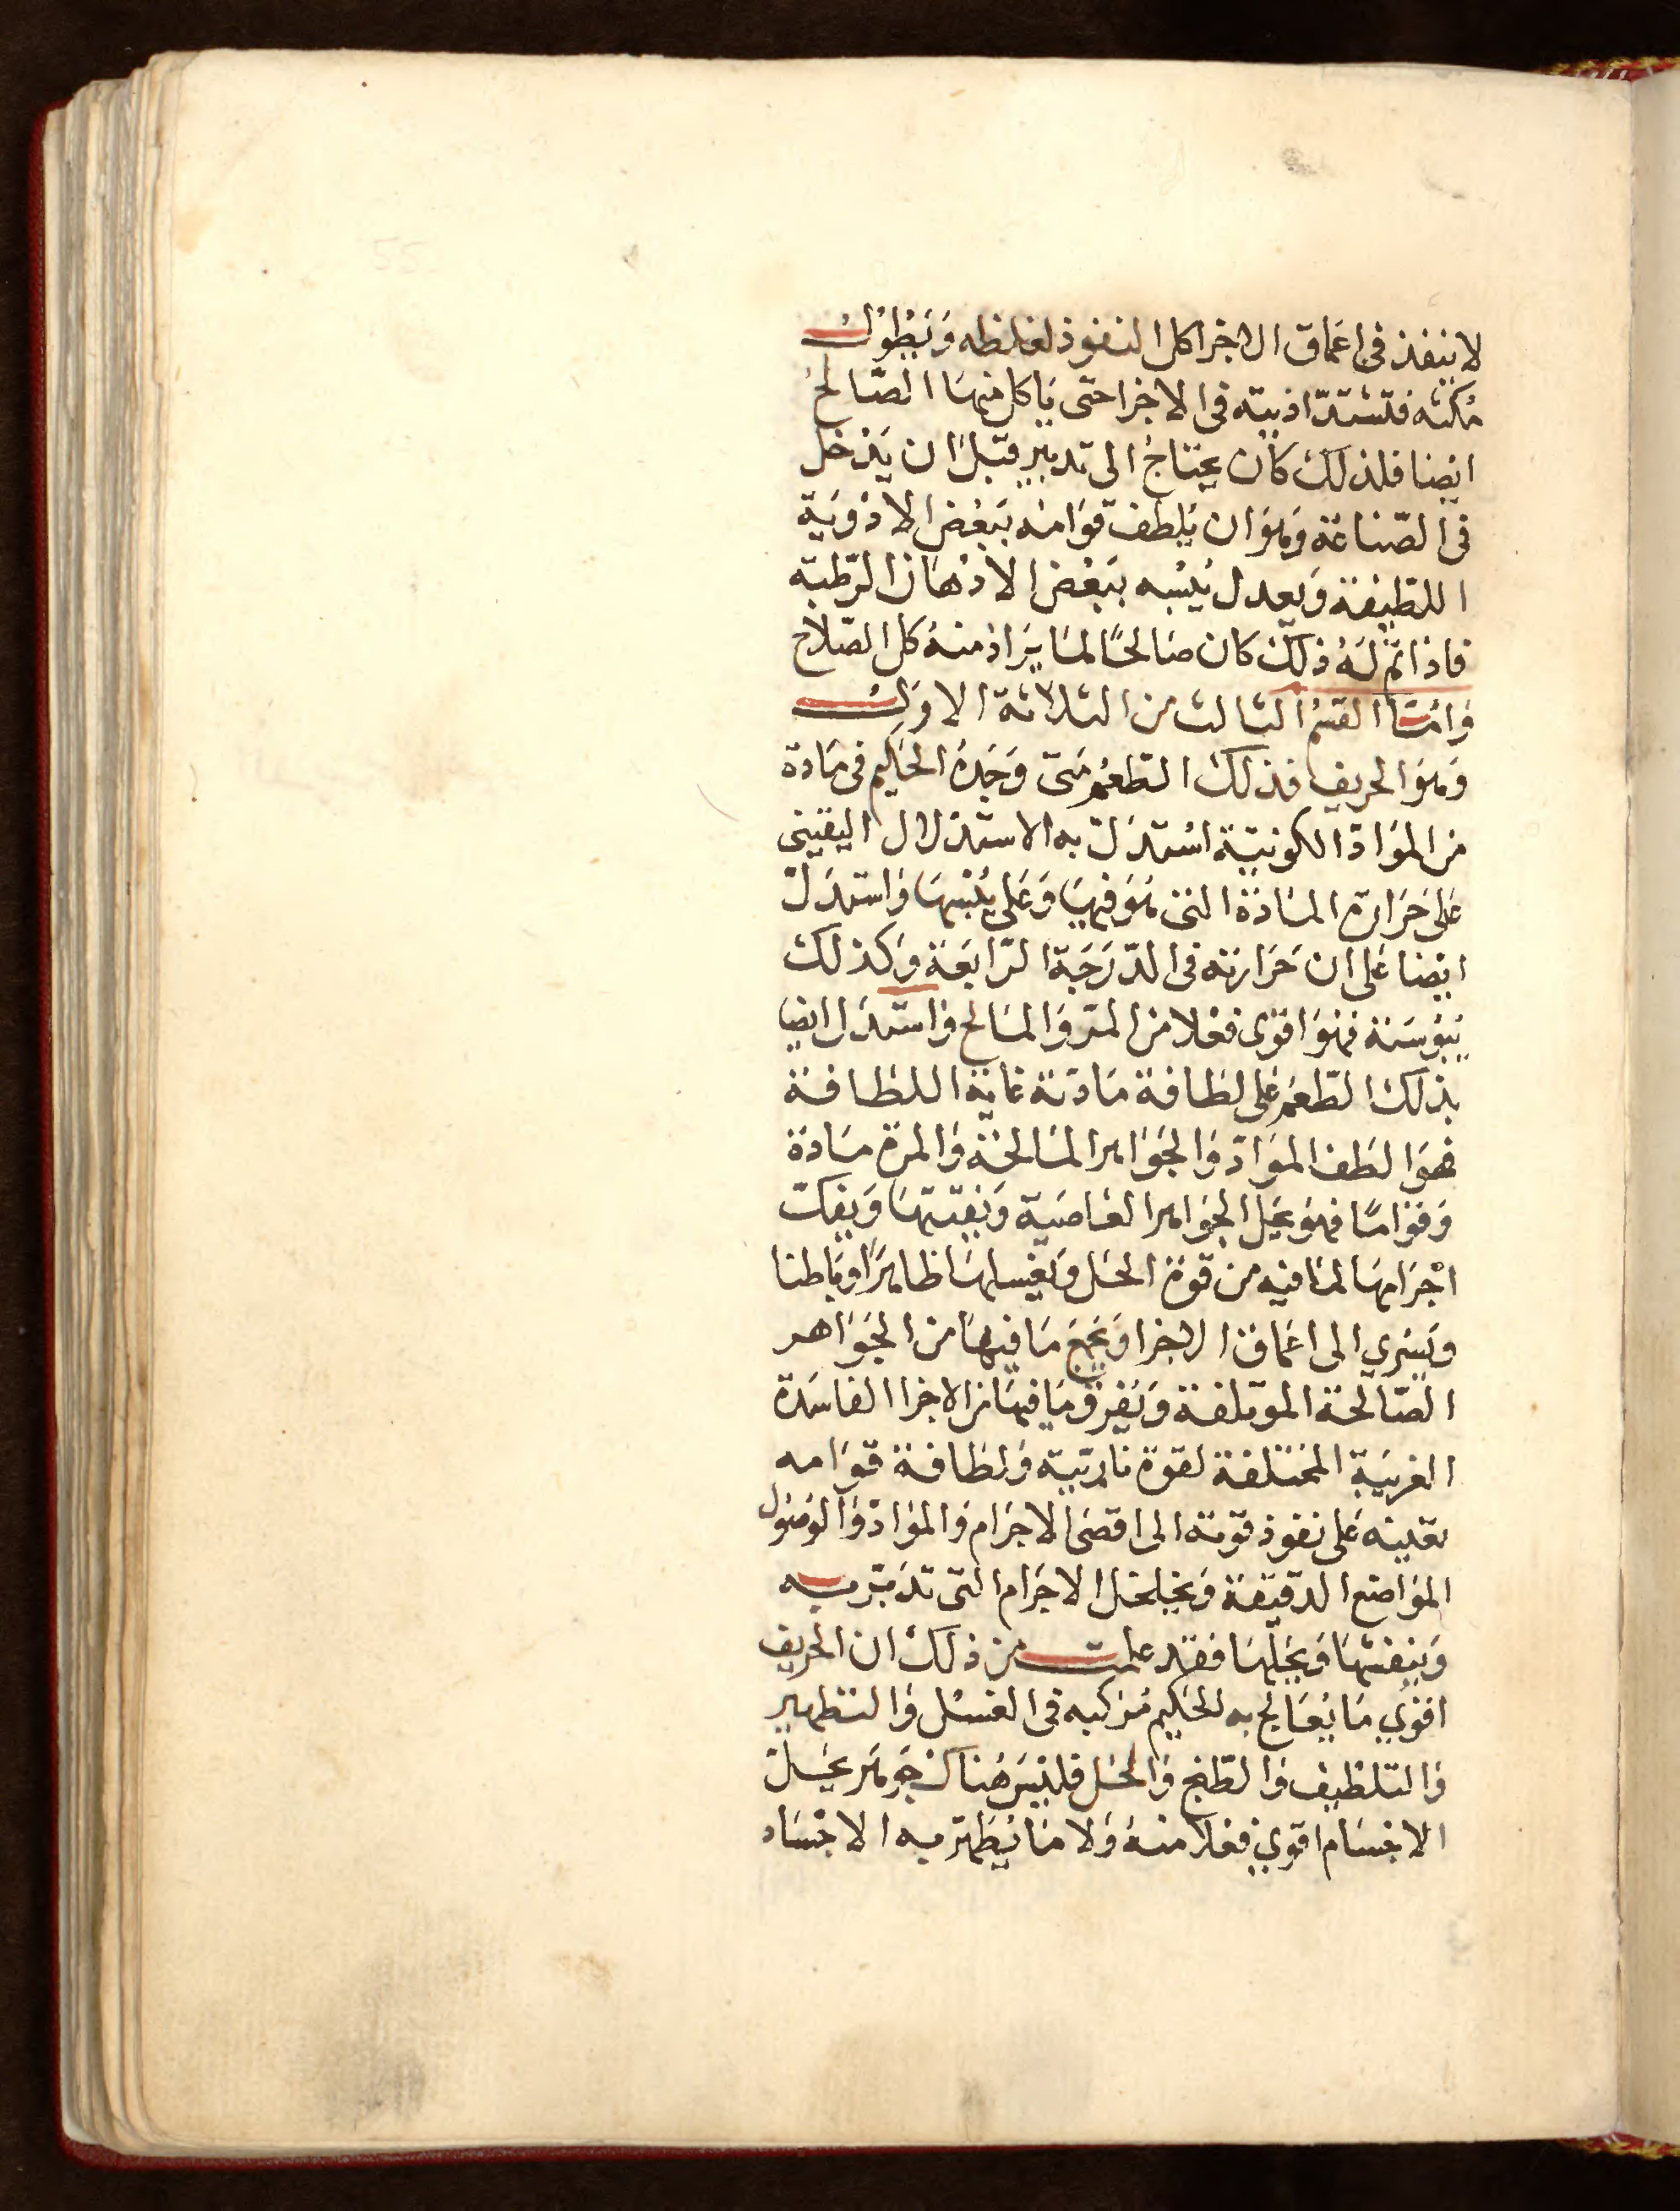 لا ينفذ فى اعماق الاجزا كل النفوذ لغلظه ويطول
مكثه فتشتد اذيته فى الاجزا حتى ياكل منها الصالح
ايضا فلذلك كان يحتاج الى تدبير قبل ان يدخل
فى الصناعة وهو ان يلطف قوامه ببعض الادوية
اللطيفة ويعدل يبسه ببعض الادهان الرطبة
فاذا تم له ذلك كان صالحًا لما يراد منه كل الصلاح
واما القسم الثالث من الثلاثة الاول
وهو الحريف فذلك الطعم متى وجده الحكيم فى مادة
من المواد الكونية استدل به الاستدلال اليقينى
على حرارة المادة التى هو فيها وعلى يبسها واستدل
ايضا على ان حرارته فى الدرجة الرابعة وكذلك
يبوسته فهو اقوى فعلا من المر والمالح واستدل ايضا
بذلك الطعم على لطافة مادته غاية اللطافة
فهو الطف المواد والجواهر المالحة والمرة مادة
وقواما فهو يحل الجواهر العاصية ويفتتها ويفكك
اجرامها لما فيه من قوة الحل ويغسلها ظاهرًا وباطنا
ويسري الى اعماق الاجزا ويجمع ما فيها من الجواهر
الصالحة الموتلفة ويفرق ما فيها من الاجزا الفاسدة
الغريبة المختلفة لقوة ناريته ولطافة قوامه
تعينه على نفوذ قوته الى اقصى الاجرام والمواد والوصول
المواضع الدقيقة ويخلخل الاجرام التى تدبر به
وينفشها ويحلها فقد علمت من ذلك ان الحريف
اقوي ما يعالج به الحكيم مركبه فى الغسل والتطهير
والتلطيف والطبخ والحل فليس هناك جوهر يحل
الاجسام اقوي فعلا منه ولا ما يطهر به الاجساد